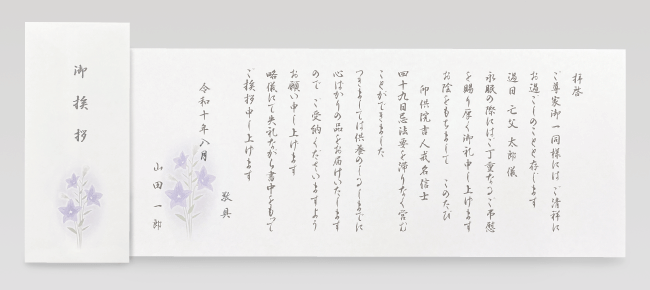 御挨拶
拝啓
ご尊家御一同様には ご清祥に
お過ごしのことと存じます
過日 亡父 太郎 儀
永眠の際にはご丁重なるご弔慰
を賜り厚く御礼申し上げます
お陰をもちまして このたび
仰供院書人戒名信士
四十九日忌法要を滞りなく営む
ことができました
つきましては供養のしるしまでに
心ばかりの品をお届けいたします
ので ご受納くださいますよう
お願い申し上げます
略儀にて失礼ながら書中をもって
ご挨拶申し上げます
敬具
令和十年八月
山田一郎